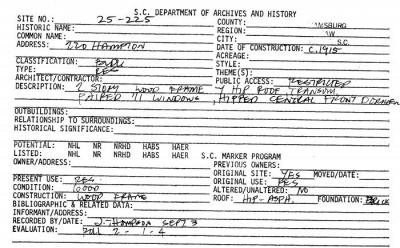 S.C. DEPARTMENT OF ARCHIVES AND HISTORY
SITE NO.: 25-225 COUNTY:
HISTORIC NAME: REGION:
COMMON NAME: CITY: S.C.
ADDRESS: 220 HAMPTON DATE OF CONSTRUCTION: C.1915
ACREAGE:
CLASSIFICATION: STYLE:
TYPE: RES THEME(S):
ARCHITECT/CONTRACTOR: PUBLIC ACCESS: RESTRICTED
DESCRIPTION: 2 STORY WOOD FRAME HIP ROOF TRANSOM
PAIRED 1/1 WINDOWS, HIPPED CENTRAL FRONT DORMER
OUTBUILDINGS:
RELATIONSHIP TO SURROUNDINGS:
HISTORICAL SIGNIFICANCE:
POTENTIAL: NHL NR NRHD HABS HAER
LISTED: NHL NR NRHD HABS HAER S.C. MARKER PROGRAM
OWNER/ADDRESS: PREVIOUS OWNERS:
ORIGINAL SITE: YES MOVED/DATE:
PRESENT USE: RES. ORIGINAL USE: RES
CONDITION: GOOD ALTERED/UNALTERED: NO
CONSTRUCTION: WOOD FRAME ROOF: HIP-ASPH. FOUNDATION: BRICK
BIBLIOGRAPHIC & RELATED DATA:
INFORMANT/ADDRESS:
RECORDED BY/DATE: J. THOMPSON SEPT 8
EVALUATION: 2-1-4